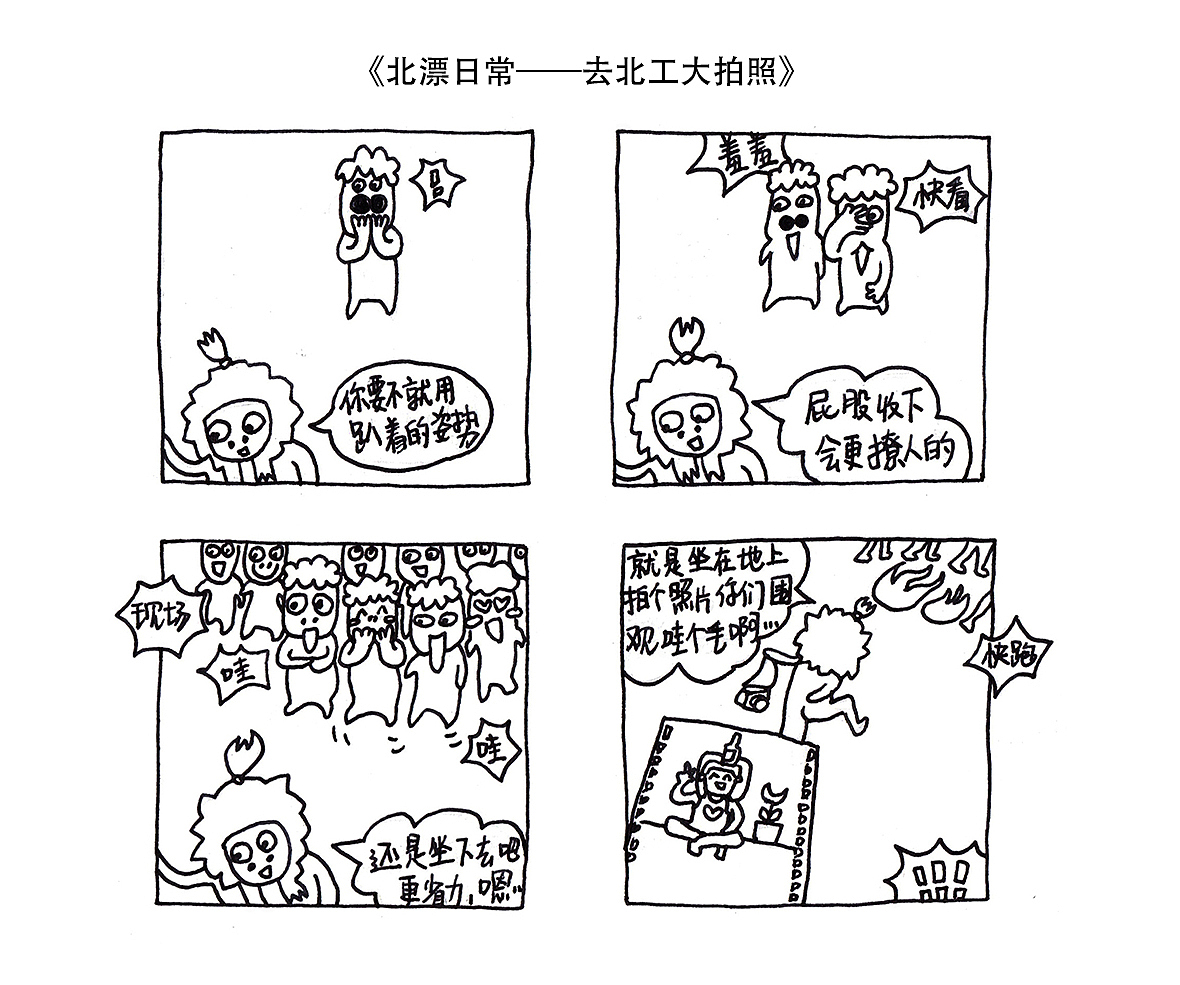 《北漂日常——去北工大拍照》
你要不就用
趴着的姿势
羞羞
快看
屁股收下
会更撩人的
现场
哇
哇
还是坐下去吧
更省力,嗯...
就是坐在地上
拍个照片你们围
观哇个毛啊...
快跑
!!!